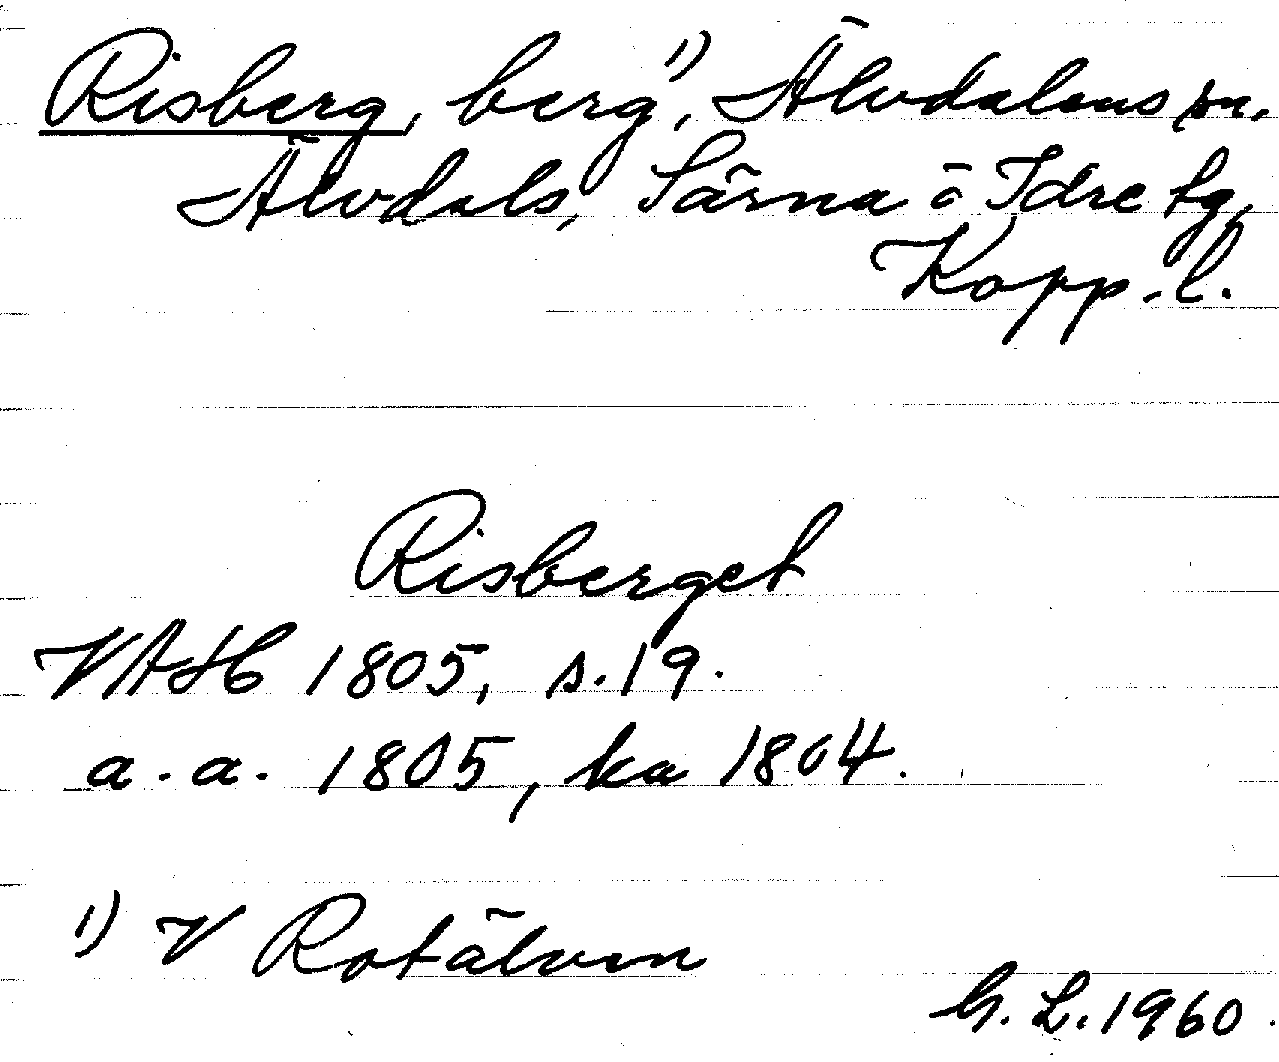 Risberg, berg¹⁾, Älvdalens sn,
Älvdals, Särna o Idre tg,
Kopp. l.
Risberget
VAH 1805, s. 19.
a. a. 1805, ka 1804.
¹⁾ V Rotälven
G. L. 1960.